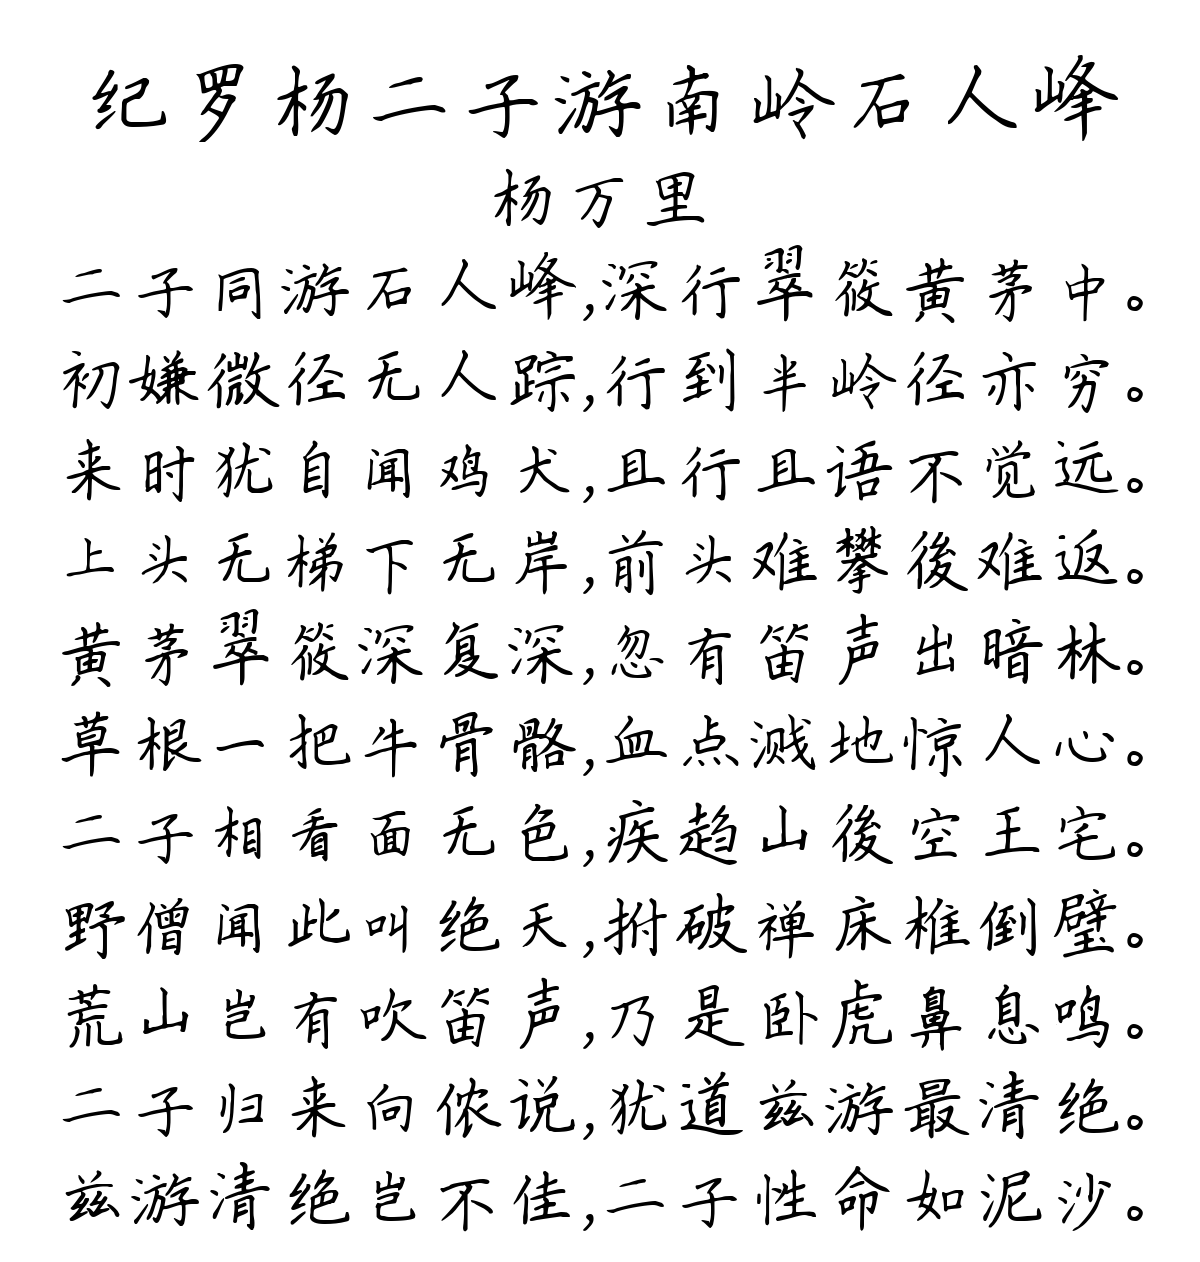 纪罗杨二子游南岭石人峰
杨万里
二子同游石人峰,深行翠筱黄茅中。
初嫌微径无人踪,行到半岭径亦穷。
来时犹自闻鸡犬,且行且语不觉远。
上头无梯下无岸,前头难攀後难返。
黄茅翠筱深复深,忽有笛声出暗林。
草根一把牛骨髂,血点溅地惊人心。
二子相看面无色,疾趋山後空王宅。
野僧闻此叫绝天,拊破禅床椎倒壁。
荒山岂有吹笛声,乃是卧虎鼻息鸣。
二子归来向侬说,犹道兹游最清绝。
兹游清绝岂不佳,二子性命如泥沙。